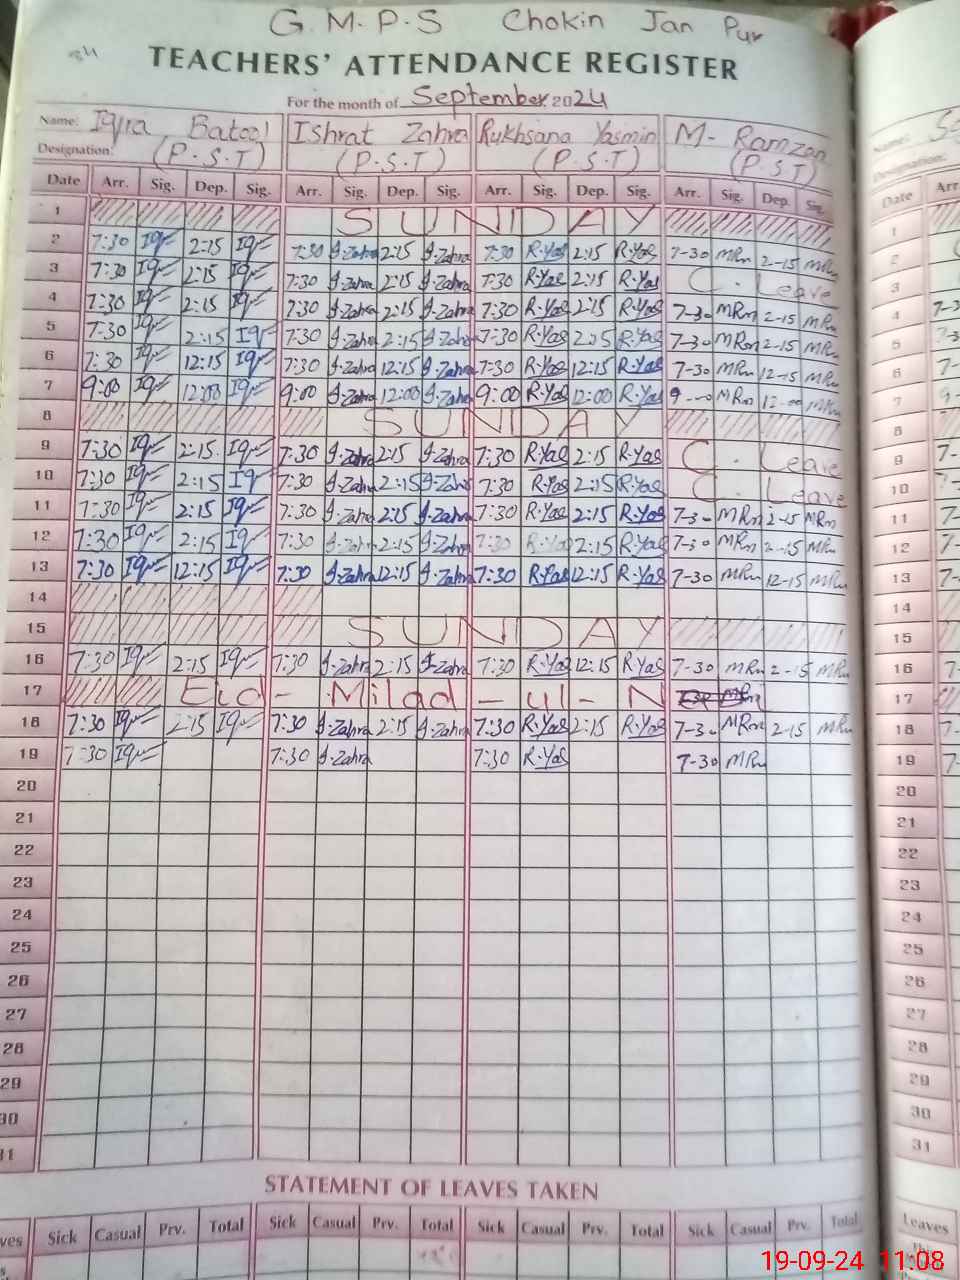 G.M.P.S Chokin Jan Pur
TEACHERS' ATTENDANCE REGISTER
For the month of September 2024
Name: Iqra Batool Ishrat Zahra Rukhsana Yasmin M- Ramzan Name:
Designation: (P.S.T) (P.S.T) (P.S.T) (P.S.T) Designation:
Date Arr. Sig. Dep. Sig. Arr. Sig. Dep. Sig. Arr. Sig. Dep. Sig. Arr. Sig. Dep. Sig. Date Arr
1 SUNDAY 1
2 7:30 Iq 2:15 Iq 7:30 I-Zahra 2:15 I-Zahra 7:30 R.Yas 2:15 R.Yas 7-30 MRm 2-15 MRm 2
3 7:30 Iq 2:15 Iq 7:30 I-Zahra 2:15 I-Zahra 7:30 R.Yas 2:15 R.Yas C. Leave 3
4 7:30 Iq 2:15 Iq 7:30 I-Zahra 2:15 I-Zahra 7:30 R.Yas 2:15 R.Yas 7-30 MRm 2-15 MRm 4
5 7:30 Iq 2:15 Iq 7:30 I-Zahra 2:15 I-Zahra 7:30 R.Yas 2:15 R.Yas 7-30 MRm 2-15 MRm 5
6 7:30 Iq 12:15 Iq 7:30 I-Zahra 12:15 I-Zahra 7:30 R.Yas 12:15 R.Yas 7-30 MRm 12-15 MRm 6
7 9:00 Iq 12:00 Iq 9:00 I-Zahra 12:00 I-Zahra 9:00 R.Yas 12:00 R.Yas 9-00 MRm 12-00 MRm 7
8 SUNDAY 8
9 7:30 Iq 2:15 Iq 7:30 I-Zahra 2:15 I-Zahra 7:30 R.Yas 2:15 R.Yas C. Leave 9
10 7:30 Iq 2:15 Iq 7:30 I-Zahra 2:15 I-Zahra 7:30 R.Yas 2:15 R.Yas C. Leave 10
11 7:30 Iq 2:15 Iq 7:30 I-Zahra 2:15 I-Zahra 7:30 R.Yas 2:15 R.Yas 7-30 MRm 2-15 MRm 11
12 7:30 Iq 2:15 Iq 7:30 I-Zahra 2:15 I-Zahra 7:30 R.Yas 2:15 R.Yas 7-30 MRm 2-15 MRm 12
13 7:30 Iq 12:15 Iq 7:30 I-Zahra 12:15 I-Zahra 7:30 R.Yas 12:15 R.Yas 7-30 MRm 12-15 MRm 13
14 14
15 SUNDAY 15
16 7:30 Iq 2:15 Iq 7:30 I-Zahra 2:15 I-Zahra 7:30 R.Yas 12:15 R.Yas 7-30 MRm 2-15 MRm 16
17 Eid- Milad - ul - N 17
18 7:30 Iq 2:15 Iq 7:30 I-Zahra 2:15 I-Zahra 7:30 R.Yas 2:15 R.Yas 7-30 MRm 2-15 MRm 18
19 7:30 Iq 7:30 I-Zahra 7:30 R.Yas 7-30 MRm 19
20 20
21 21
22 22
23 23
24 24
25 25
26 26
27 27
28 28
29 29
30 30
31 31
STATEMENT OF LEAVES TAKEN
Sick Casual Prv. Total Sick Casual Prv. Total Sick Casual Prv. Total Sick Casual Prv. Total Leaves
19-09-24 11:08